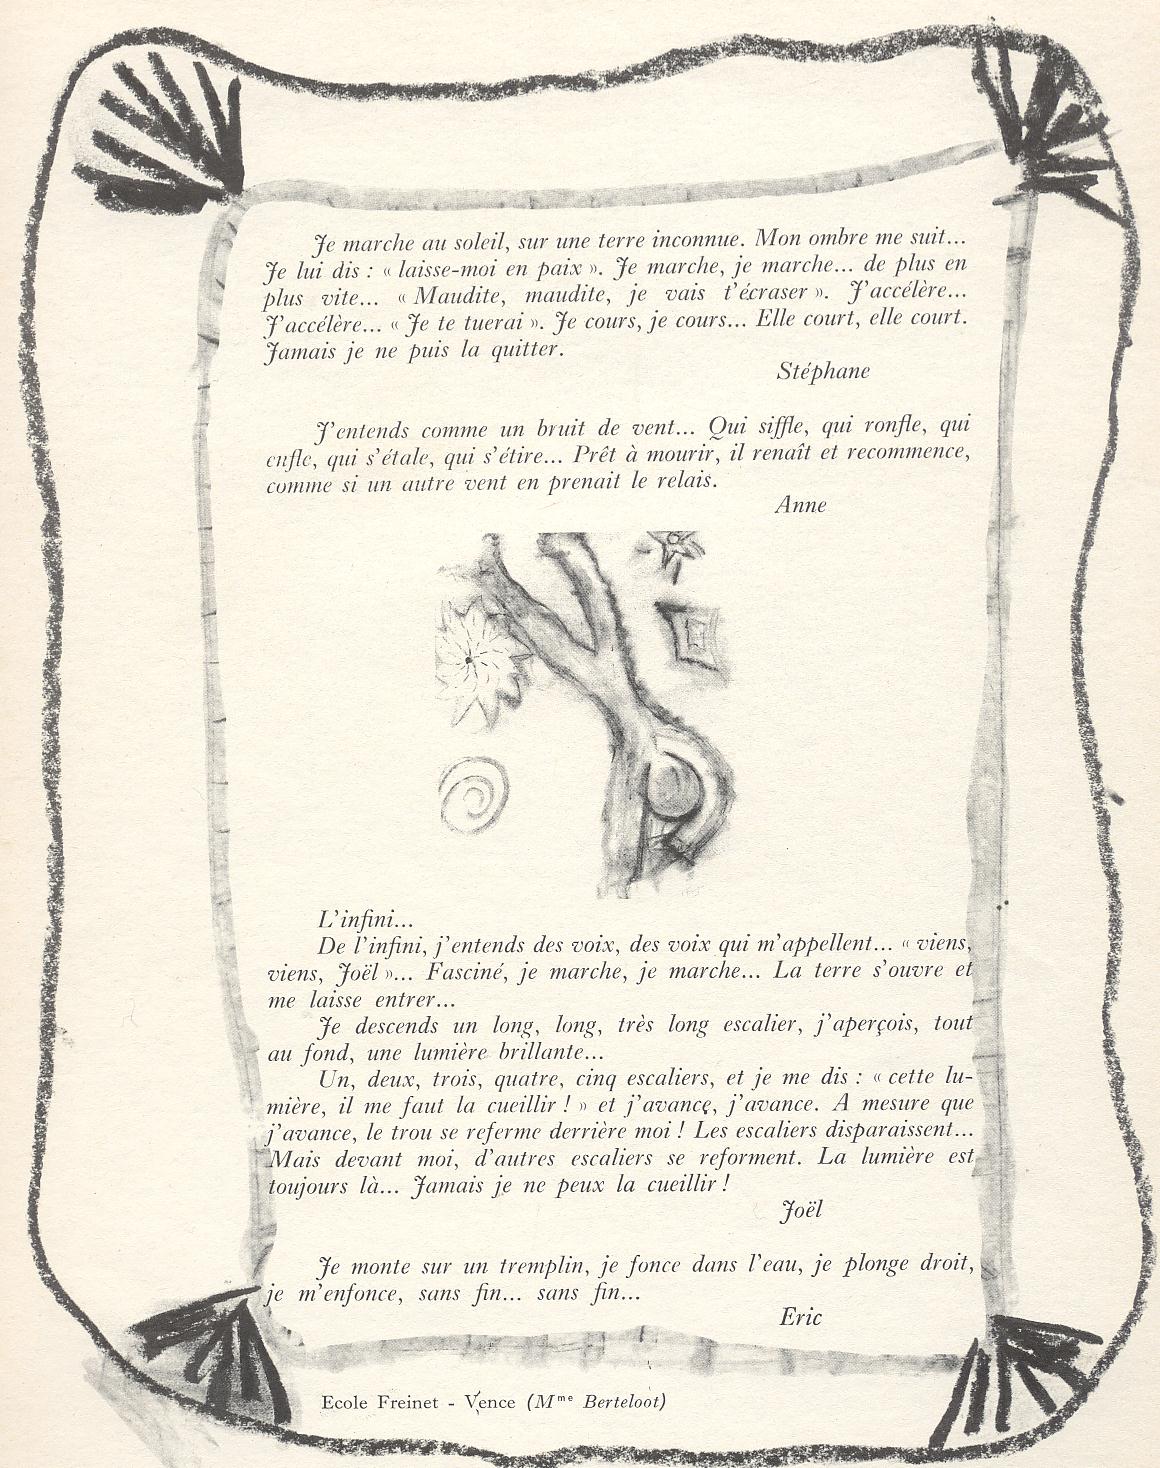 Je marche au soleil, sur une terre inconnue. Mon ombre me suit...
Je lui dis : « laisse-moi en paix ». Je marche, je marche... de plus en
plus vite... « Maudite, maudite, je vais t'écraser ». J'accélère...
J'accélère... « Je te tuerai ». Je cours, je cours... Elle court, elle court.
Jamais je ne puis la quitter.
Stéphane
J'entends comme un bruit de vent... Qui siffle, qui ronfle, qui
enfle, qui s'étale, qui s'étire... Prêt à mourir, il renaît et recommence,
comme si un autre vent en prenait le relais.
Anne
L'infini...
De l'infini, j'entends des voix, des voix qui m'appellent... « viens,
viens, Joël »... Fasciné, je marche, je marche... La terre s'ouvre et
me laisse entrer...
Je descends un long, long, très long escalier, j'aperçois, tout
au fond, une lumière brillante...
Un, deux, trois, quatre, cinq escaliers, et je me dis : « cette lu-
mière, il me faut la cueillir ! » et j'avance, j'avance. A mesure que
j'avance, le trou se referme derrière moi ! Les escaliers disparaissent...
Mais devant moi, d'autres escaliers se reforment. La lumière est
toujours là... Jamais je ne peux la cueillir !
Joël
Je monte sur un tremplin, je fonce dans l'eau, je plonge droit,
je m'enfonce, sans fin... sans fin...
Eric
Ecole Freinet - Vence (Mme Berteloot)